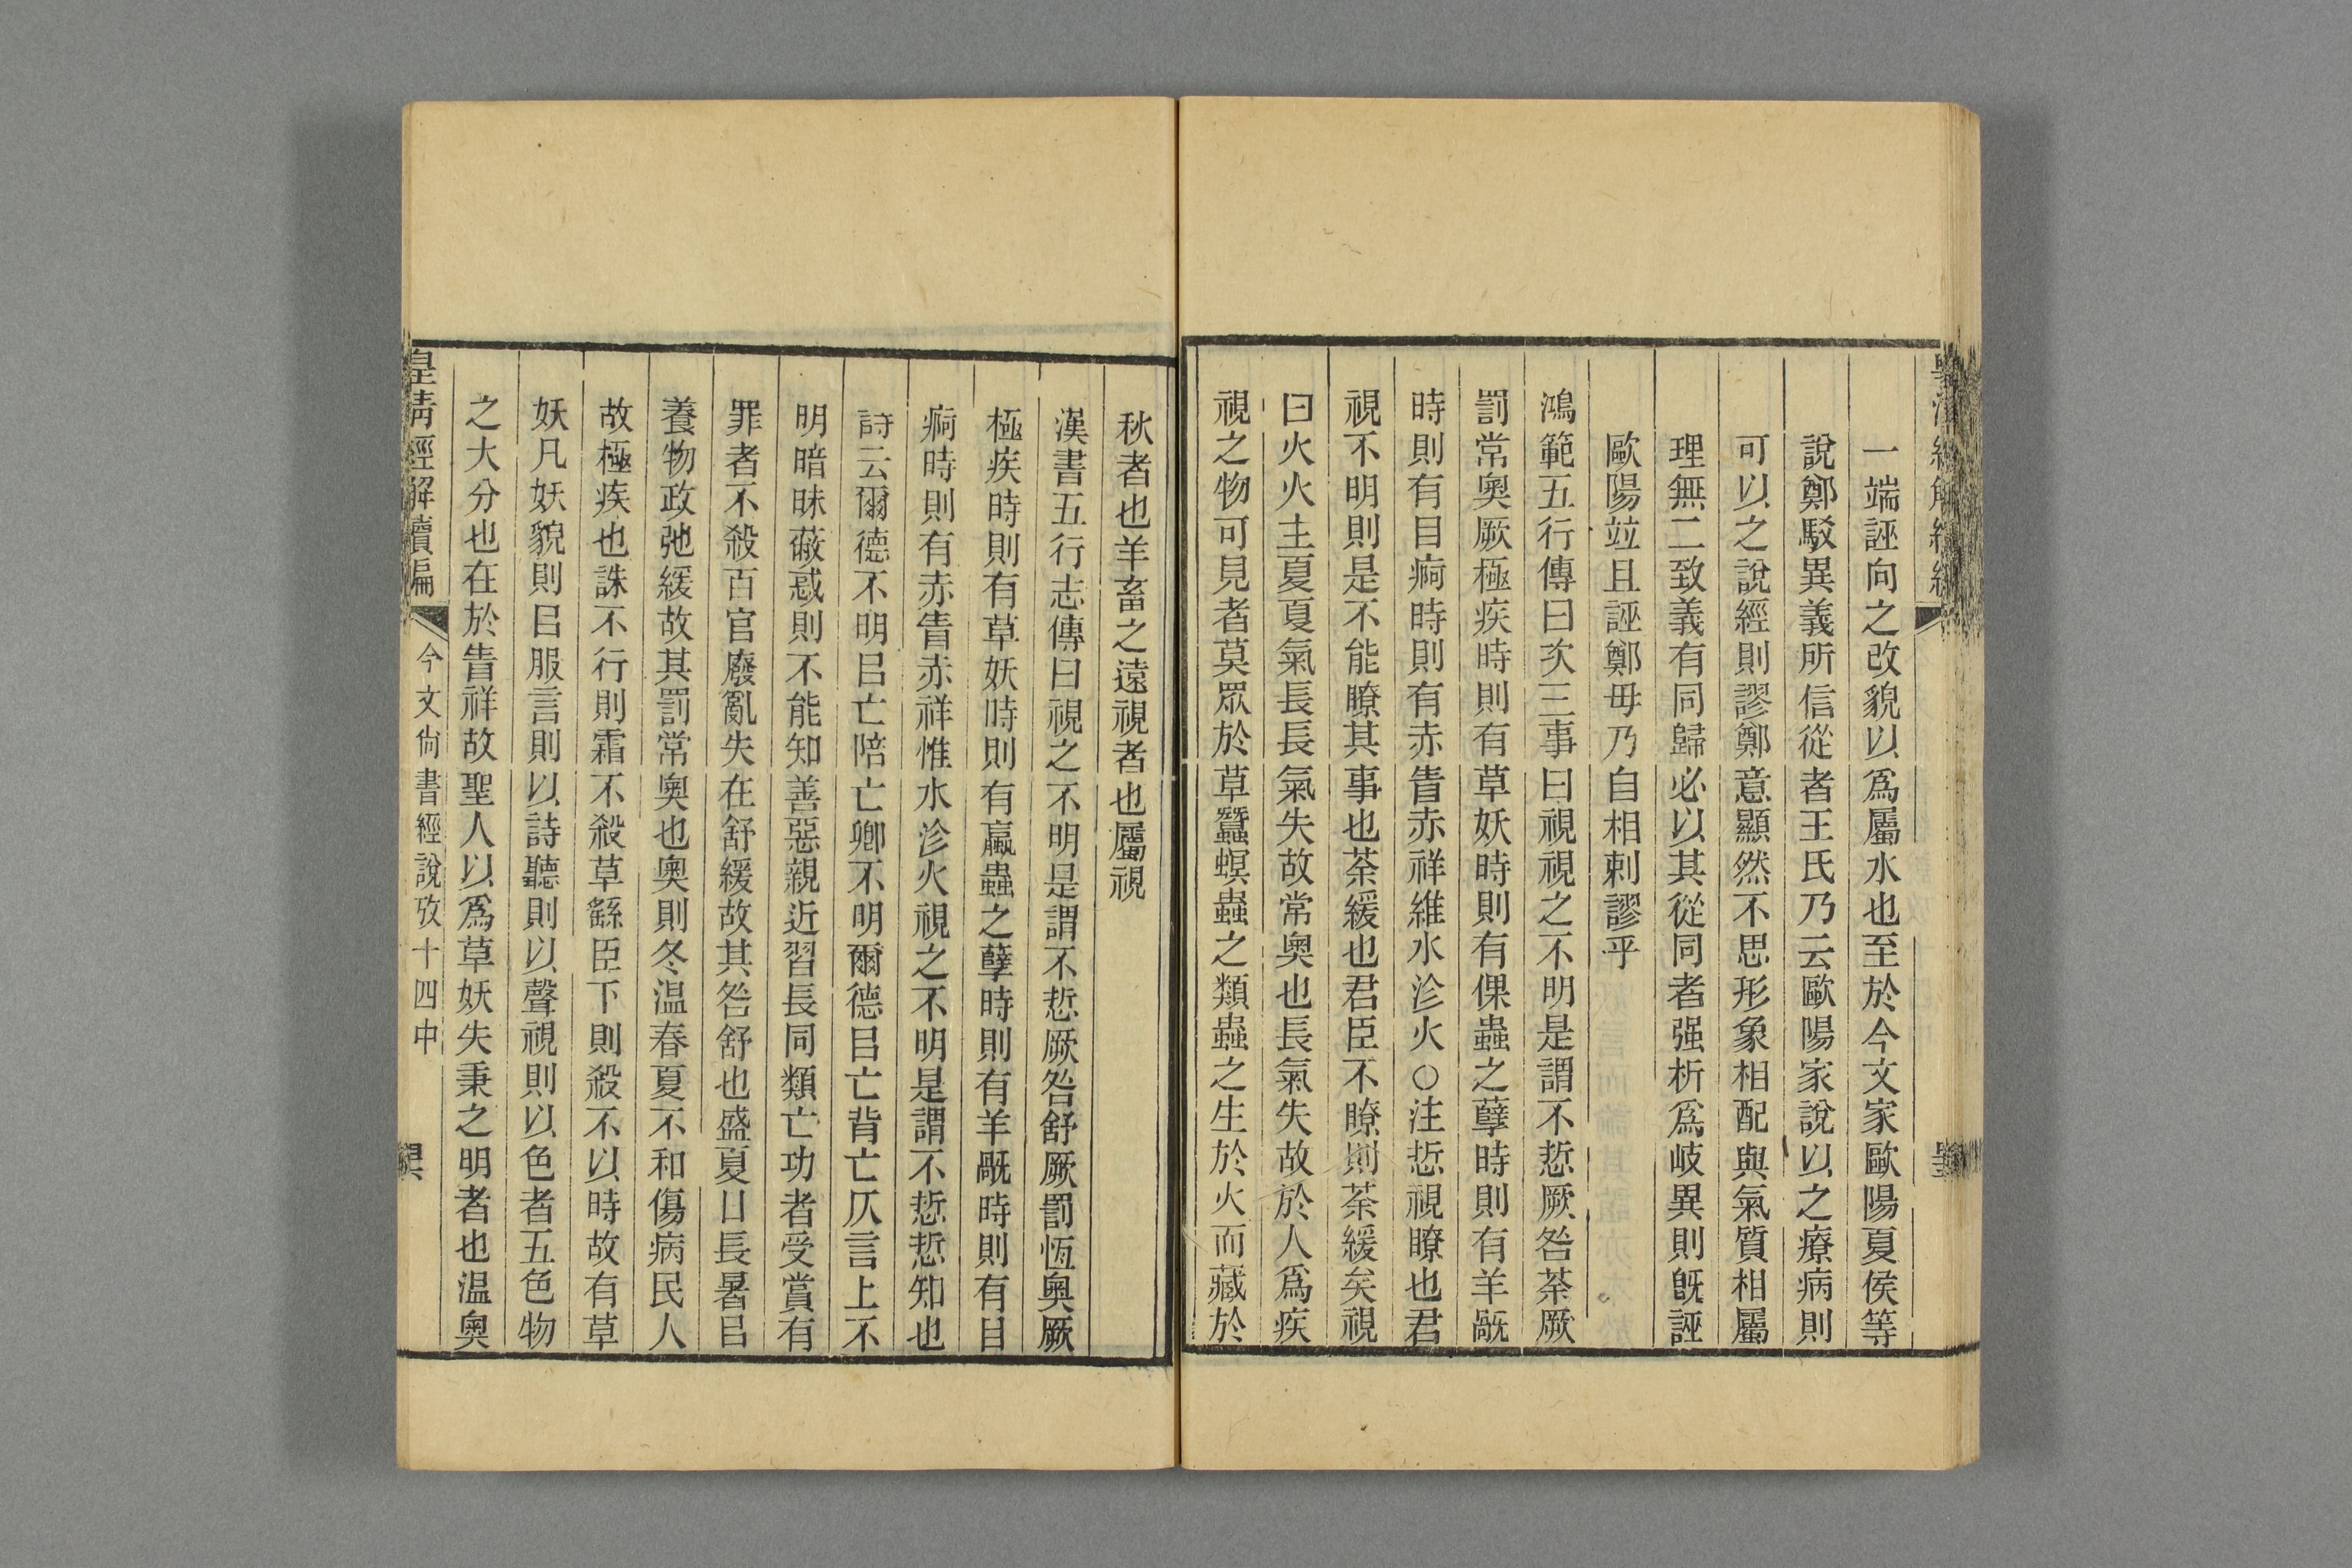 一端誣向之改貌以爲屬水也至於今文家歐陽夏侯等
說鄭駁異義所信從者王氏乃云歐陽家說以之療病則
可以之說經則謬鄭意顯然不思形象相配與氣質相屬
理無二致義有同歸必以其從同者强析爲岐異則旣誣
歐陽竝且誣鄭毋乃自相剌謬乎
鴻範五行傳曰次三事曰視視之不明是謂不悊厥咎荼厥
罰常奧厥極疾時則有草妖時則有倮蟲之孽時則有羊旤
時則有目痾時則有赤眚赤祥維水沴火○注悊視瞭也君
視不明則是不能瞭其事也荼緩也君臣不瞭則荼緩矣視
曰火火主夏夏氣長長氣失故常奧也長氣失故於人爲疾
視之物可見者莫眾於草蠶螟蟲之類蟲之生於火而藏於
秋者也羊畜之遠視者也屬視
漢書五行志傳曰視之不明是謂不悊厥咎舒厥罰恆奧厥
極疾時則有草妖時則有蠃蟲之孽時則有羊旤時則有目
痾時則有赤眚赤祥惟水沴火視之不明是謂不悊悊知也
詩云爾德不明㠯亡陪亡卿不明爾德㠯亡背亡仄言上不
明暗昧蔽惑則不能知善惡親近習長同類亡功者受賞有
罪者不殺百官廢亂失在舒緩故其咎舒也盛夏日長暑㠯
養物政弛緩故其罰常奧也奧則冬溫春夏不和傷病民人
故極疾也誅不行則霜不殺草繇臣下則殺不以時故有草
妖凡妖貌則㠯服言則以詩聽則以聲視則以色者五色物
之大分也在於眚祥故聖人以爲草妖失秉之明者也溫奧
皇清經解續編
今文尙書經說攷十四中